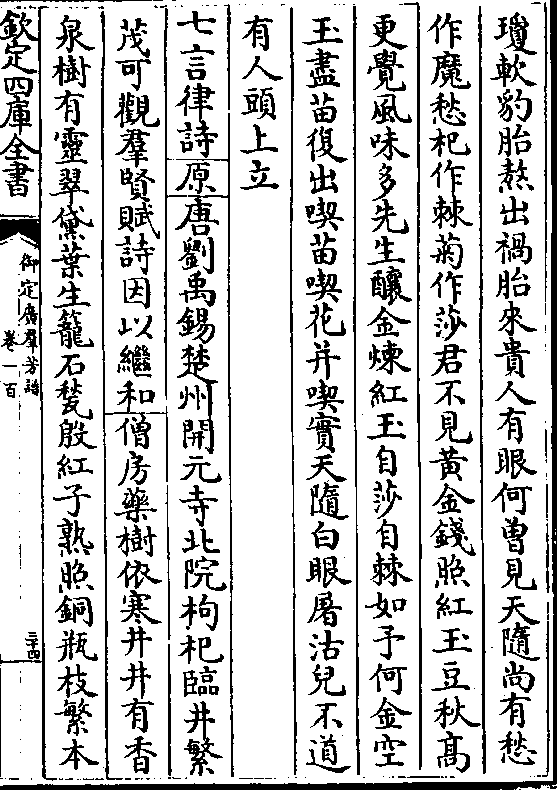 瓊軟豹胎熬出禍胎來貴人有眼何曽見天隨尚有愁
作魔愁杞作棘菊作莎君不見黃金錢照紅玉豆秋髙
更覺風味多先生釀金煉紅玉自莎自棘如予何金空
玉盡苗復出喫苗喫花并喫實天隨白眼屠沽兒不道
有人頭上立
七言律詩原唐劉禹錫楚州開元寺北院枸杞臨井繁
茂可觀羣賢賦詩因以繼和僧房藥樹依寒井井有香
泉樹有靈翠黛葉生籠石甃殷紅子熟照銅瓶枝繁本
欽定四庫全書
御定廣羣芳譜
卷一百
三十四